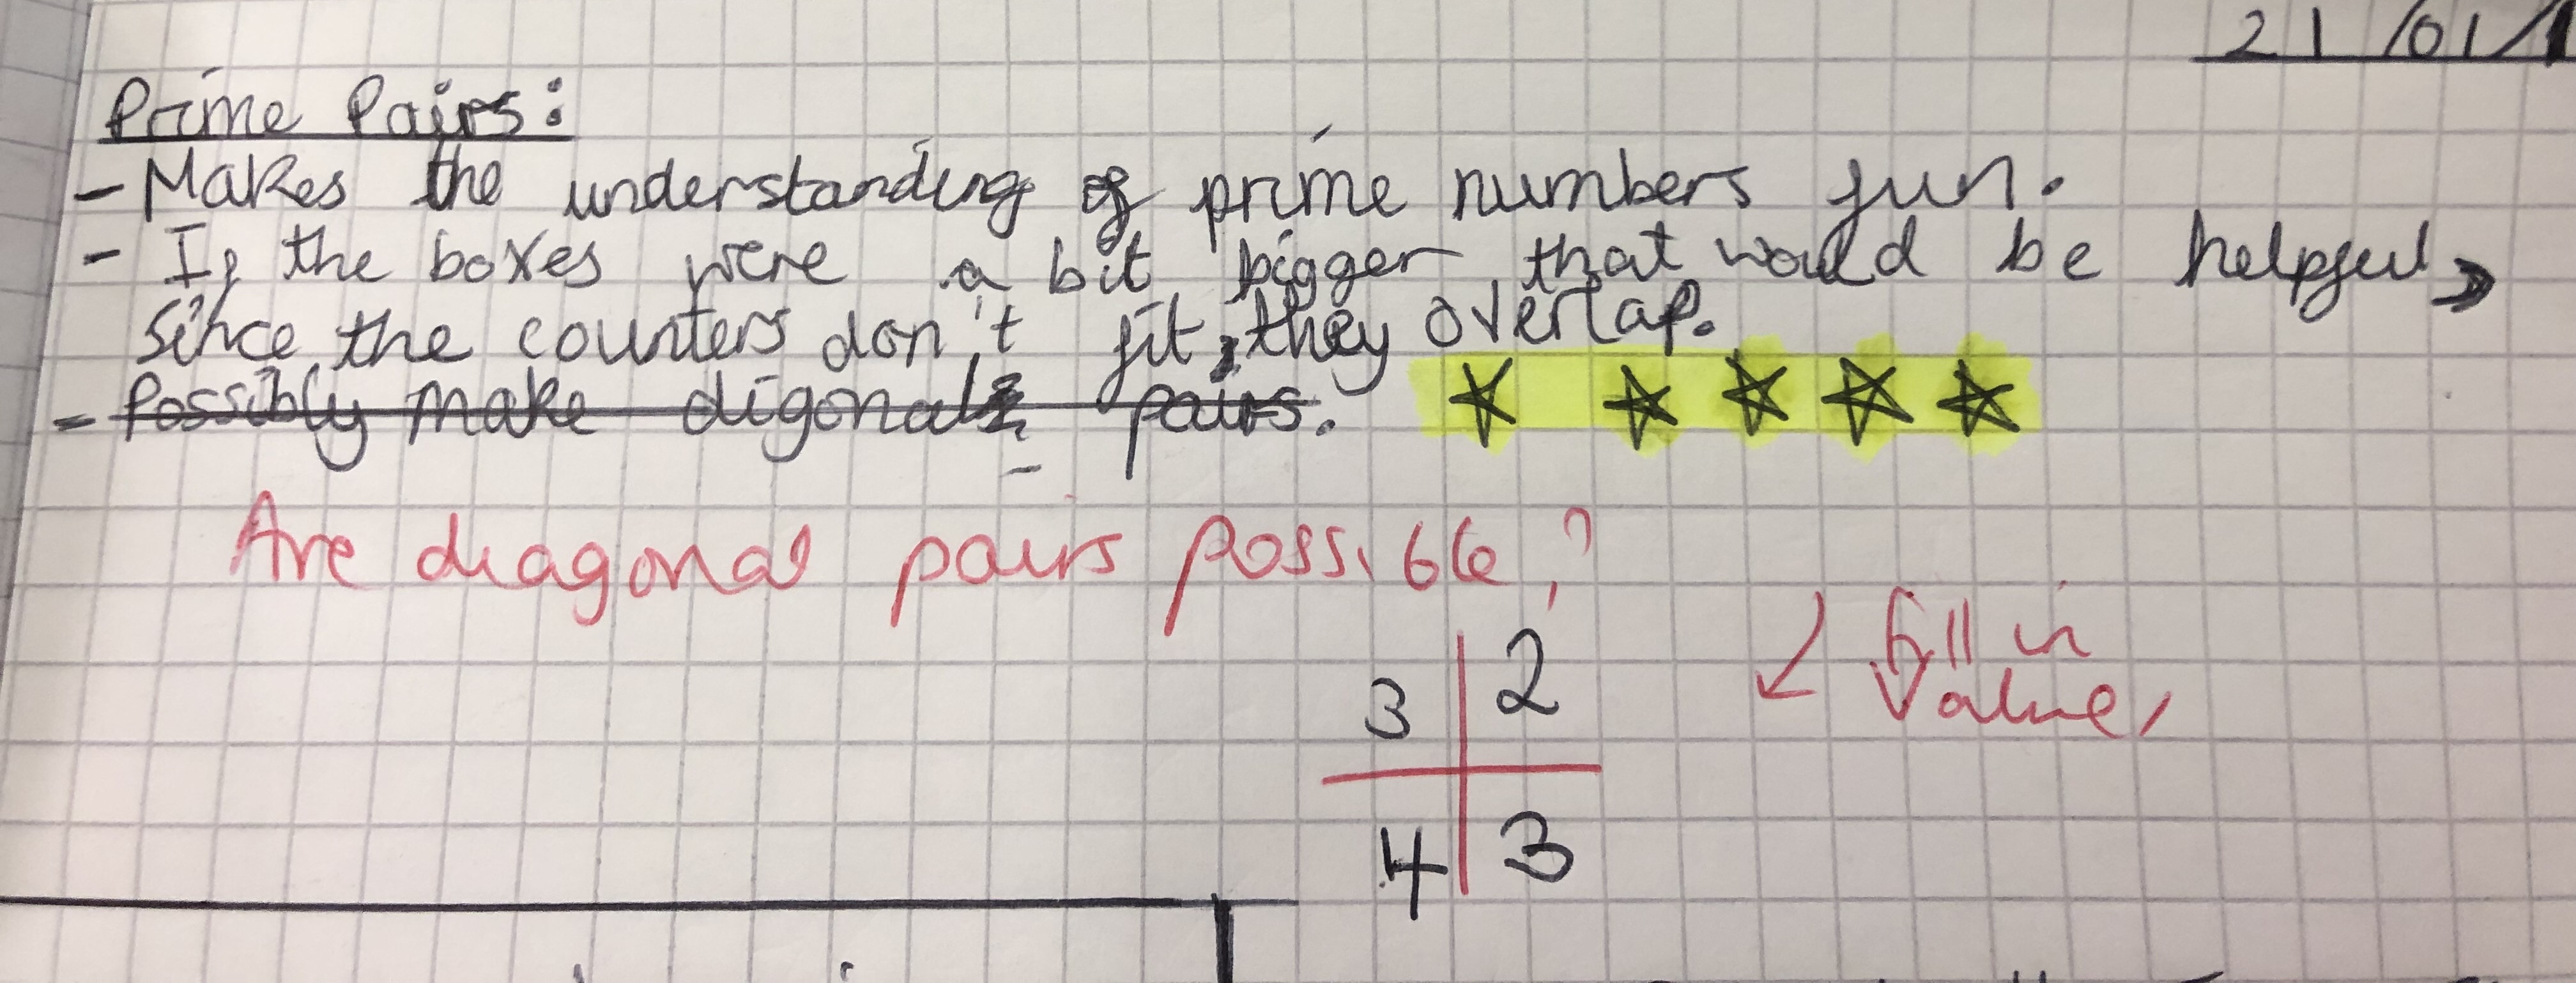 21/01/1
Prime Pairs:
- Makes the understanding of prime numbers fun.
- If the boxes were a bit bigger that would be helpful,
since the counters don't fit, they overlap.
- Possibly make digonal pairs.
Are diagonal pairs possible?
3 2
fill in
values
4 3